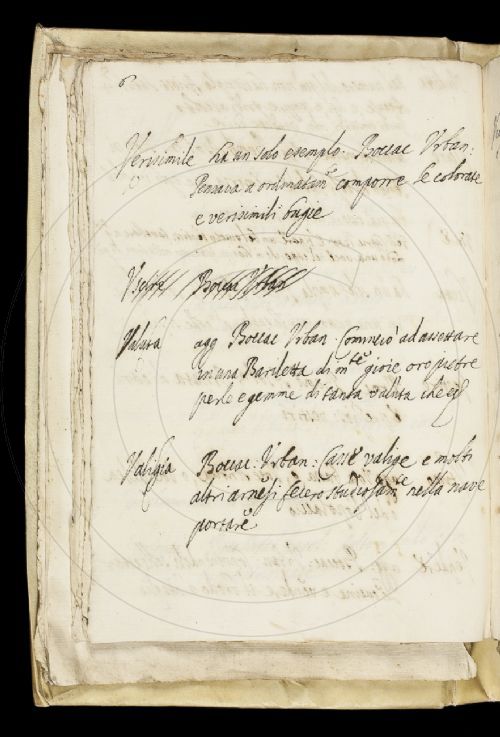 6
Verisimile ha un solo esempio. Boccac Urban.
Pensava a ordinatam.te comporre le colorate
e verisimili bugie
Valuta agg Boccac Urban Cominciò ad assettare
in una Bariletta di m.te gioie oro pietre
perle e gemme di tanta valuta che
Valigia Boccac: Urban: Casse valige e molti
altri arnesi fecero studiosam.te nella nave
portare